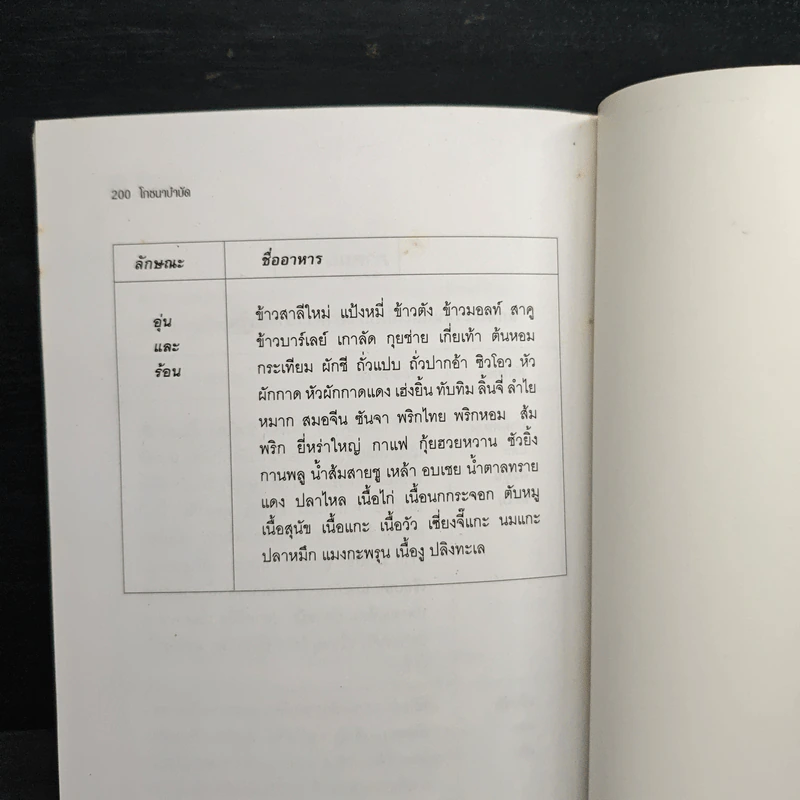 200 โภชนาบำบัด
ลักษณะ ชื่ออาหาร
อุ่น
และ
ร้อน
ข้าวสาลีใหม่ แป้งหมี่ ข้าวตัง ข้าวมอลท์ สาคู
ข้าวบาร์เลย์ เกาลัด กุยช่าย เกี่ยเท้า ต้นหอม
กระเทียม ผักชี ถั่วแปบ ถั่วปากอ้า ชิวโอว หัว
ผักกาด หัวผักกาดแดง เฮ่งยิ้น ทับทิม ลิ้นจี่ ลำไย
หมาก สมอจีน ซันจา พริกไทย พริกหอม ส้ม
พริก ยี่หร่าใหญ่ กาแฟ กุ้ยฮวยหวาน ซัวยิ้ง
กานพลู น้ำส้มสายชู เหล้า อบเชย น้ำตาลทราย
แดง ปลาไหล เนื้อไก่ เนื้อนกกระจอก ตับหมู
เนื้อสุนัข เนื้อแกะ เนื้อวัว เซี่ยงจี๊แกะ นมแกะ
ปลาหมึก แมงกะพรุน เนื้องู ปลิงทะเล